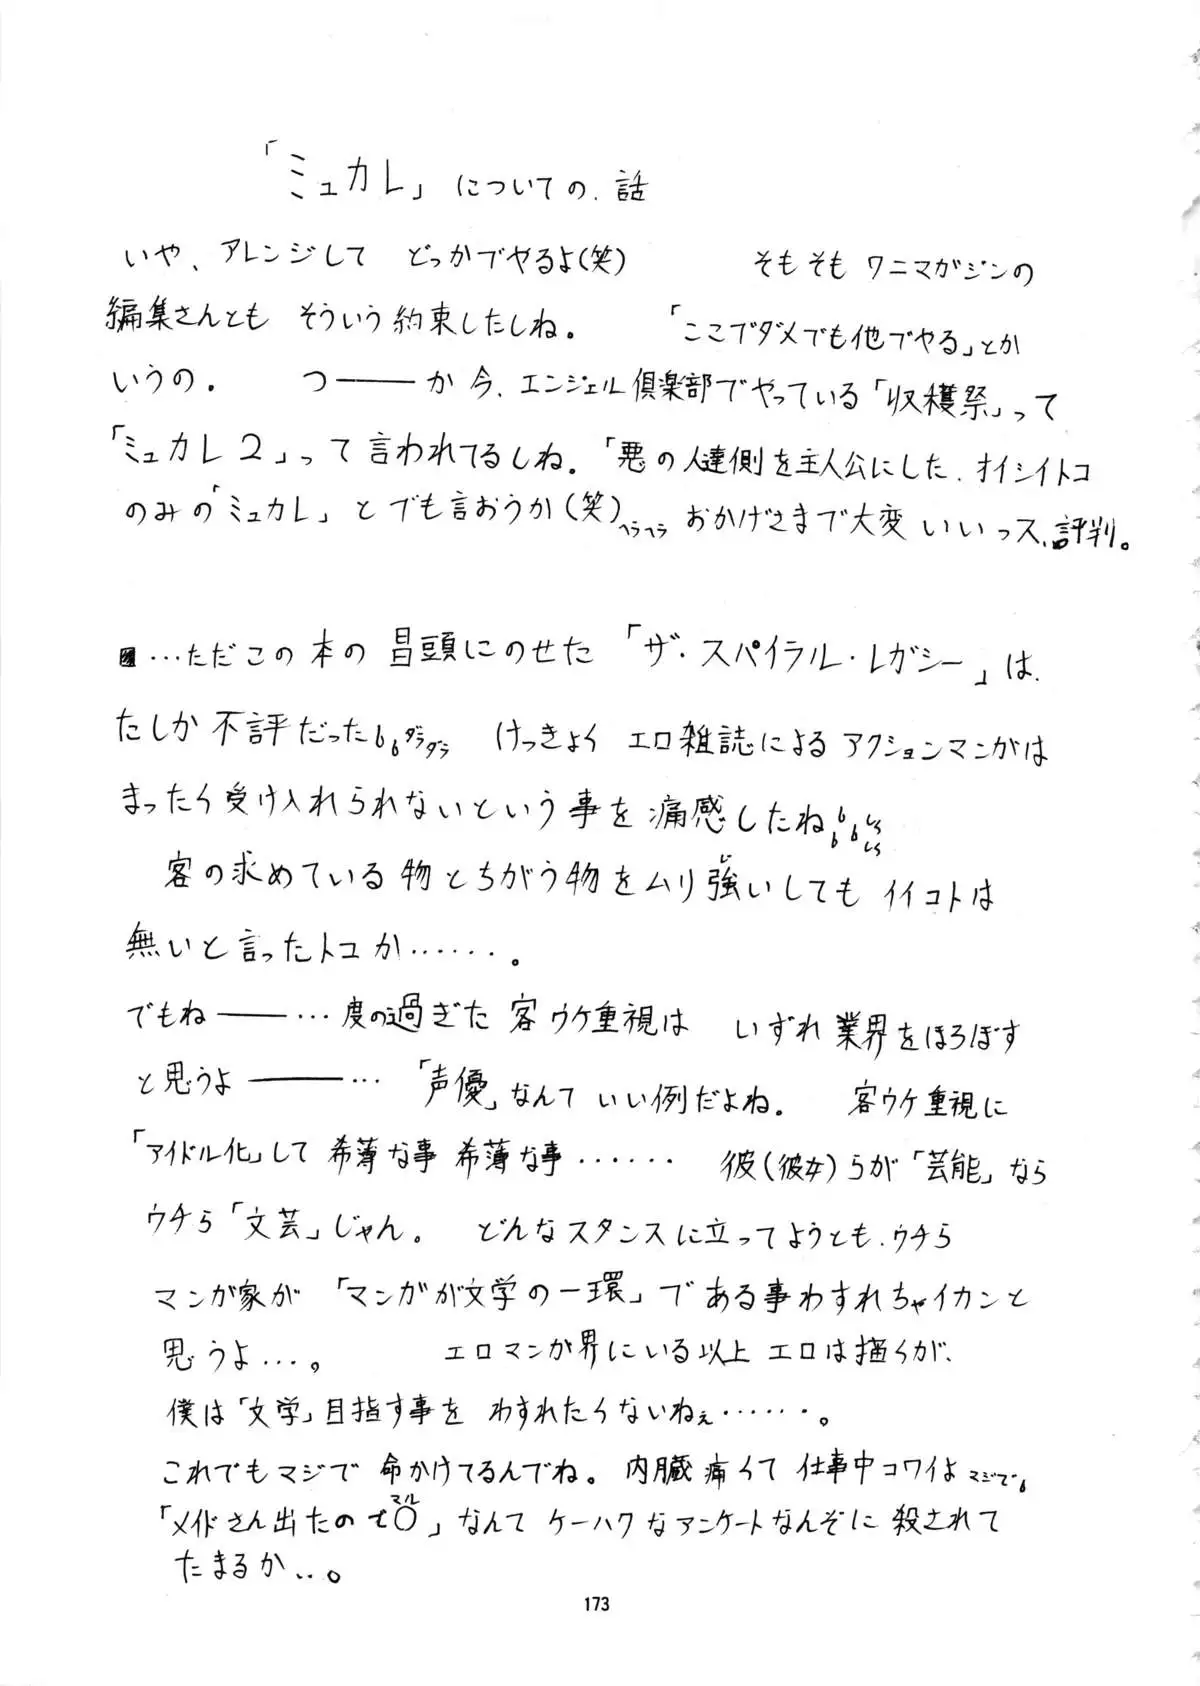 「ミュカレ」についての、話
いや、アレンジして どっかでやるよ(笑) そもそも ワニマガジンの
編集さんとも そういう約束したしね。 「ここでダメでも他でやる」とか
いうの。 つ――か 今、エンジェル倶楽部でやっている「収穫祭」って
「ミュカレ2」って言われてるしね。「悪の人達側を主人公にした、オイシイトコ
のみの「ミュカレ」とでも言おうか(笑)ヘラヘラ おかげさまで大変 いいっス、評判。
…ただこの本の冒頭にのせた「ザ・スパイラル・レガシー」は、
たしか不評だったダラダラ けっきょく エロ雑誌によるアクションマンガは
まったく受け入れられないという事を痛感したね
客の求めている物とちがう物をムリ強いしても イイコトは
無いと言ったトコか・・・・・・。
でもね――…度の過ぎた 客ウケ重視は いずれ業界をほろぼす
と思うよ――… 「声優」なんて いい例だよね。 客ウケ重視に
「アイドル化」して 希薄な事 希薄な事・・・・・・ 彼(彼女)らが「芸能」なら
ウチら「文芸」じゃん。 どんなスタンスに立ってようとも、ウチら
マンガ家が 「マンガが文学の一環」である事わすれちゃイカンと
思うよ…。 エロマンガ界にいる以上 エロは描くが、
僕は「文学」目指す事を わすれたくないねぇ・・・・・・。
これでもマジで 命かけてるんでね。内臓痛くて 仕事中コワイよ マジで。
「メイドさん出たので〇マル」なんて ケーハクなアンケートなんぞに 殺されて
たまるか…。
173